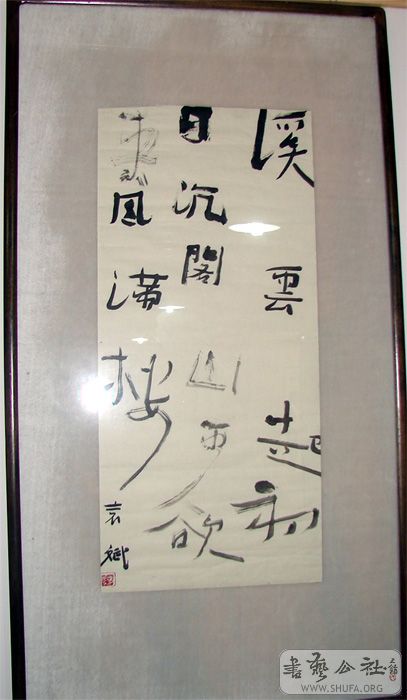 溪雲起初
日沉閣山雨欲
來風滿樓
袁斌
書藝公社
WWW.SHUFA.ORG